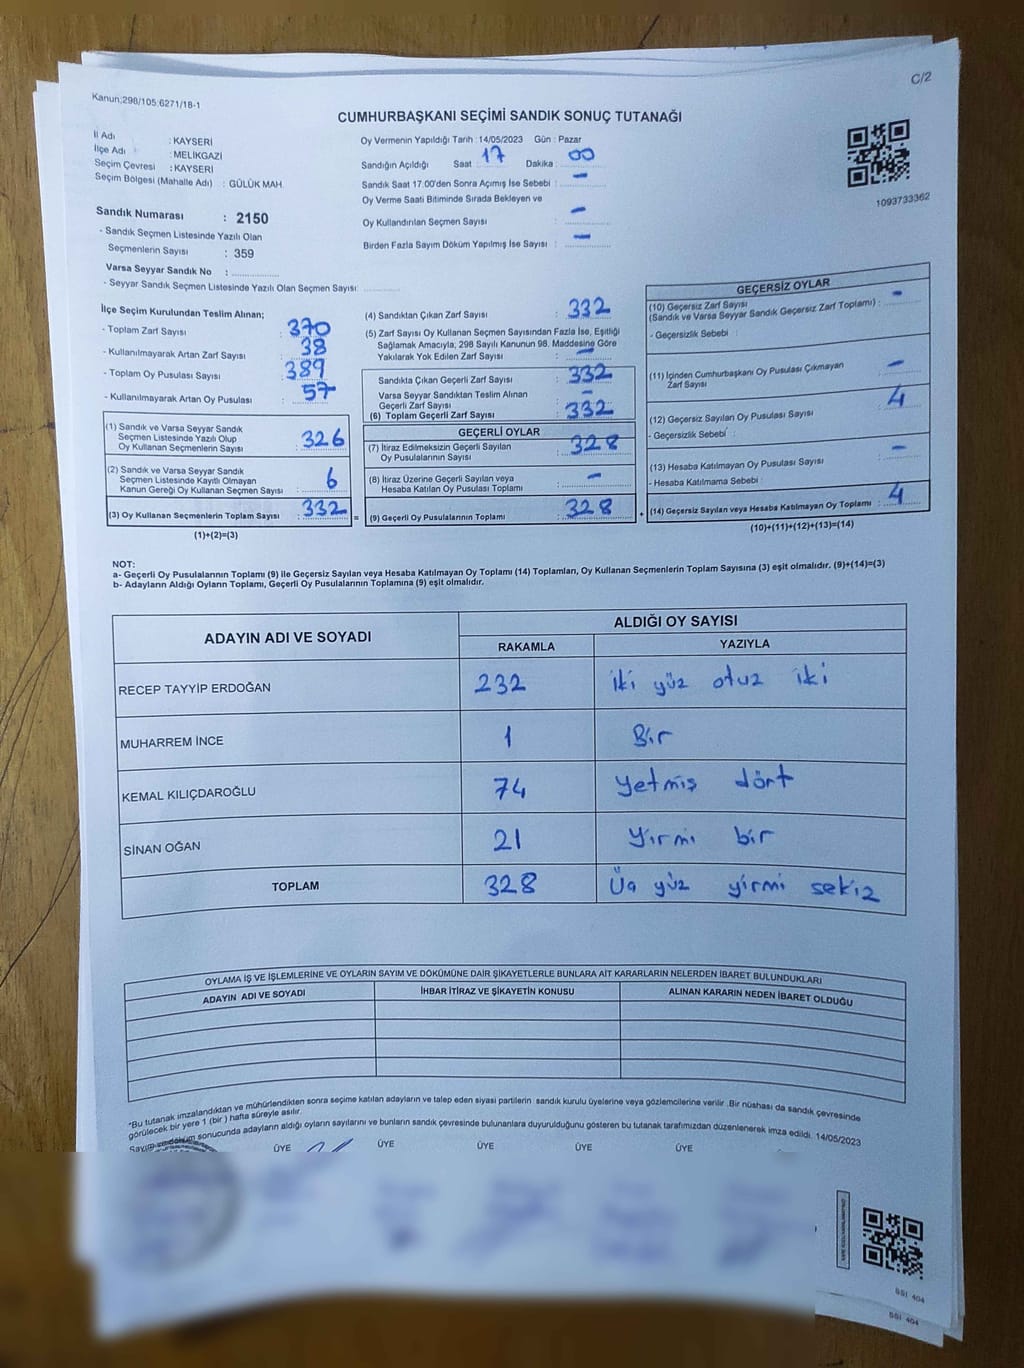 C/2
Kanun;298/105;6271/18-1
CUMHURBAŞKANI SEÇİMİ SANDIK SONUÇ TUTANAĞI
İl Adı : KAYSERİ
İlçe Adı : MELİKGAZİ
Seçim Çevresi : KAYSERİ
Seçim Bölgesi (Mahalle Adı) : GÜLÜK MAH.
Sandık Numarası : 2150
- Sandık Seçmen Listesinde Yazılı Olan
Seçmenlerin Sayısı : 359
Varsa Seyyar Sandık No :
- Seyyar Sandık Seçmen Listesinde Yazılı Olan Seçmen Sayısı:
Oy Vermenin Yapıldığı Tarih :14/05/2023 Gün : Pazar
Sandığın Açıldığı Saat : 17 Dakika : 00
Sandık Saat 17.00'den Sonra Açımış İse Sebebi : -
Oy Verme Saati Bitiminde Sırada Bekleyen ve
Oy Kullandırılan Seçmen Sayısı : -
Birden Fazla Sayım Döküm Yapılmış İse Sayısı : -
1093733362
İlçe Seçim Kurulundan Teslim Alınan;
- Toplam Zarf Sayısı : 370
- Kullanılmayarak Artan Zarf Sayısı : 38
- Toplam Oy Pusulası Sayısı : 389
- Kullanılmayarak Artan Oy Pusulası : 57
(1) Sandık ve Varsa Seyyar Sandık
Seçmen Listesinde Yazılı Olup
Oy Kullanan Seçmenlerin Sayısı : 326
(2) Sandık ve Varsa Seyyar Sandık
Seçmen Listesinde Kayıtlı Olmayan
Kanun Gereği Oy Kullanan Seçmen Sayısı : 6
(3) Oy Kullanan Seçmenlerin Toplam Sayısı : 332
(1)+(2)=(3)
(4) Sandıktan Çıkan Zarf Sayısı : 332
(5) Zarf Sayısı Oy Kullanan Seçmen Sayısından Fazla İse, Eşitliği
Sağlamak Amacıyla; 298 Sayılı Kanunun 98. Maddesine Göre
Yakılarak Yok Edilen Zarf Sayısı : -
Sandıkta Çıkan Geçerli Zarf Sayısı : 332
Varsa Seyyar Sandıktan Teslim Alınan
Geçerli Zarf Sayısı : -
(6) Toplam Geçerli Zarf Sayısı : 332
GEÇERLİ OYLAR
(7) İtiraz Edilmeksizin Geçerli Sayılan
Oy Pusulalarının Sayısı : 328
(8) İtiraz Üzerine Geçerli Sayılan veya
Hesaba Katılan Oy Pusulası Toplamı : -
= (9) Geçerli Oy Pusulalarının Toplamı : 328
GEÇERSİZ OYLAR
(10) Geçersiz Zarf Sayısı
(Sandık ve Varsa Seyyar Sandık Geçersiz Zarf Toplamı) : -
- Geçersizlik Sebebi :
(11) İçinden Cumhurbaşkanı Oy Pusulası Çıkmayan
Zarf Sayısı : -
(12) Geçersiz Sayılan Oy Pusulası Sayısı : 4
- Geçersizlik Sebebi :
(13) Hesaba Katılmayan Oy Pusulası Sayısı : -
- Hesaba Katılmama Sebebi :
+ (14) Geçersiz Sayılan veya Hesaba Katılmayan Oy Toplamı : 4
(10)+(11)+(12)+(13)=(14)
NOT:
a- Geçerli Oy Pusulalarının Toplamı (9) ile Geçersiz Sayılan veya Hesaba Katılmayan Oy Toplamı (14) Toplamları, Oy Kullanan Seçmenlerin Toplam Sayısına (3) eşit olmalıdır. (9)+(14)=(3)
b- Adayların Aldığı Oyların Toplamı, Geçerli Oy Pusulalarının Toplamına (9) eşit olmalıdır.
ADAYIN ADI VE SOYADI ALDIĞI OY SAYISI
RAKAMLA YAZIYLA
RECEP TAYYİP ERDOĞAN 232 iki yüz otuz iki
MUHARREM İNCE 1 Bir
KEMAL KILIÇDAROĞLU 74 Yetmiş dört
SİNAN OĞAN 21 Yirmi bir
TOPLAM 328 Üç yüz yirmi sekiz
OYLAMA İŞ VE İŞLEMLERİNE VE OYLARIN SAYIM VE DÖKÜMÜNE DAİR ŞİKAYETLERLE BUNLARA AİT KARARLARIN NELERDEN İBARET BULUNDUKLARI
ADAYIN ADI VE SOYADI İHBAR İTİRAZ VE ŞİKAYETİN KONUSU ALINAN KARARIN NEDEN İBARET OLDUĞU
*Bu tutanak imzalandıktan ve mühürlendikten sonra seçime katılan adayların ve talep eden siyasi partilerin sandık kurulu üyelerine veya gözlemcilerine verilir .Bir nüshası da sandık çevresinde
görülecek bir yere 1 (bir ) hafta süreyle asılır.
Sayım ve döküm sonucunda adayların aldığı oyların sayılarını ve bunların sandık çevresinde bulunanlara duyurulduğunu gösteren bu tutanak tarafımızdan düzenlenerek imza edildi. 14/05/2023
ÜYE ÜYE ÜYE ÜYE ÜYE
SSI 404
SSI 404